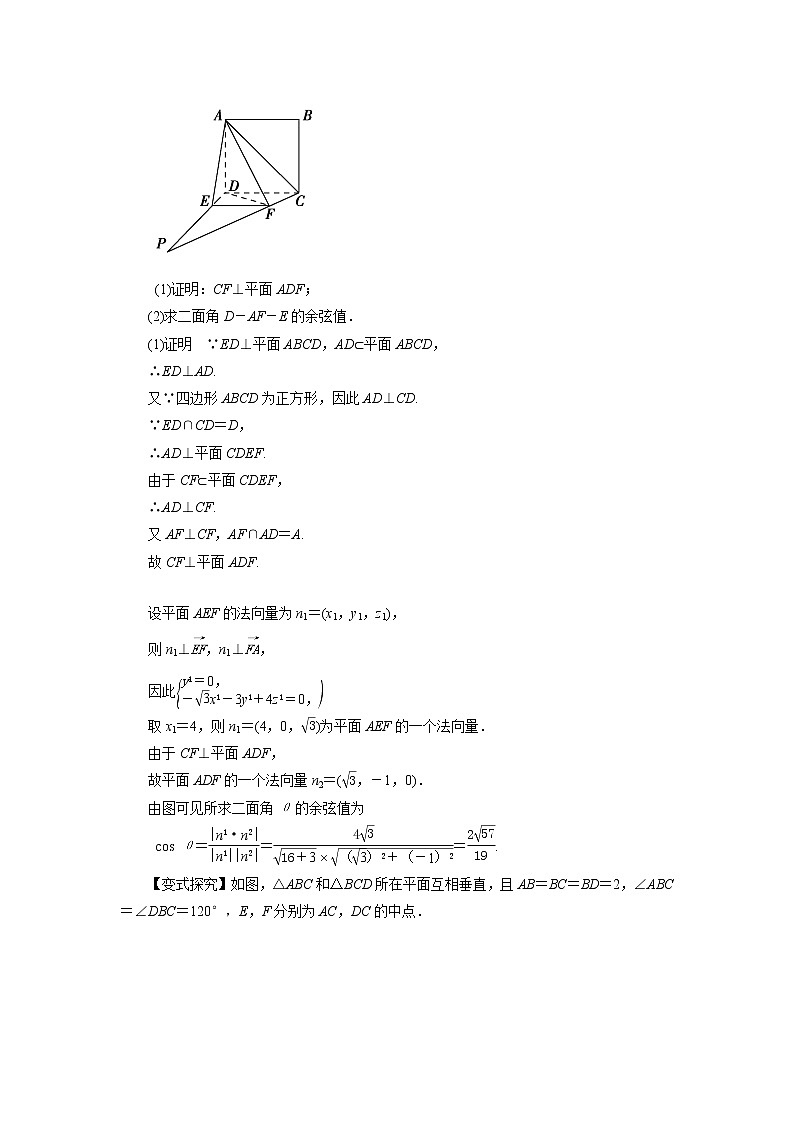 A B
D
E F C
P
(1)证明：CF⊥平面ADF；
(2)求二面角D－AF－E的余弦值．
(1)证明　∵ED⊥平面ABCD，AD⊂平面ABCD，
∴ED⊥AD.
又∵四边形ABCD为正方形，因此AD⊥CD.
∵ED∩CD＝D，
∴AD⊥平面CDEF.
由于CF⊂平面CDEF，
∴AD⊥CF.
又AF⊥CF，AF∩AD＝A.
故CF⊥平面ADF.
设平面AEF的法向量为n₁＝(x₁，y₁，z₁)，
则n₁⊥\overrightarrow{EF}，n₁⊥\overrightarrow{FA}，
因此{y¹＝0，
－√3x¹－3y¹＋4z¹＝0，)
取x₁＝4，则n₁＝(4，0，√3)为平面AEF的一个法向量．
由于CF⊥平面ADF，
故平面ADF的一个法向量n₂＝(√3，－1，0)．
由图可见所求二面角θ的余弦值为
cos θ＝|n¹·n²|/|n¹||n²|＝4√3/√16＋3×√（√3）²＋（－1）²＝2√57/19.
【变式探究】如图，△ABC和△BCD所在平面互相垂直，且AB＝BC＝BD＝2，∠ABC
＝∠DBC＝120°，E，F分别为AC，DC的中点．